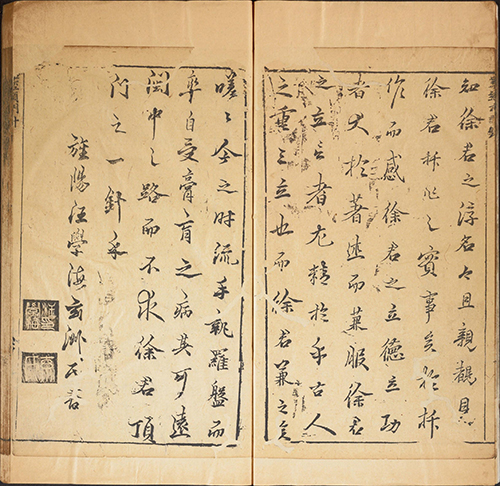 知徐君之浮名々且親覩其
徐君拆肱之實事矣於拆
作而感徐君之立德立功
者大於著述而兼服徐君
之立言者尤精於千古人
之重三立也而徐君兼之矣
嗟々今之時流手執羅盤而
卒自受膏肓之病其可遠
関中之路而不求徐君頂
門之一針乎
旌陽汪學海